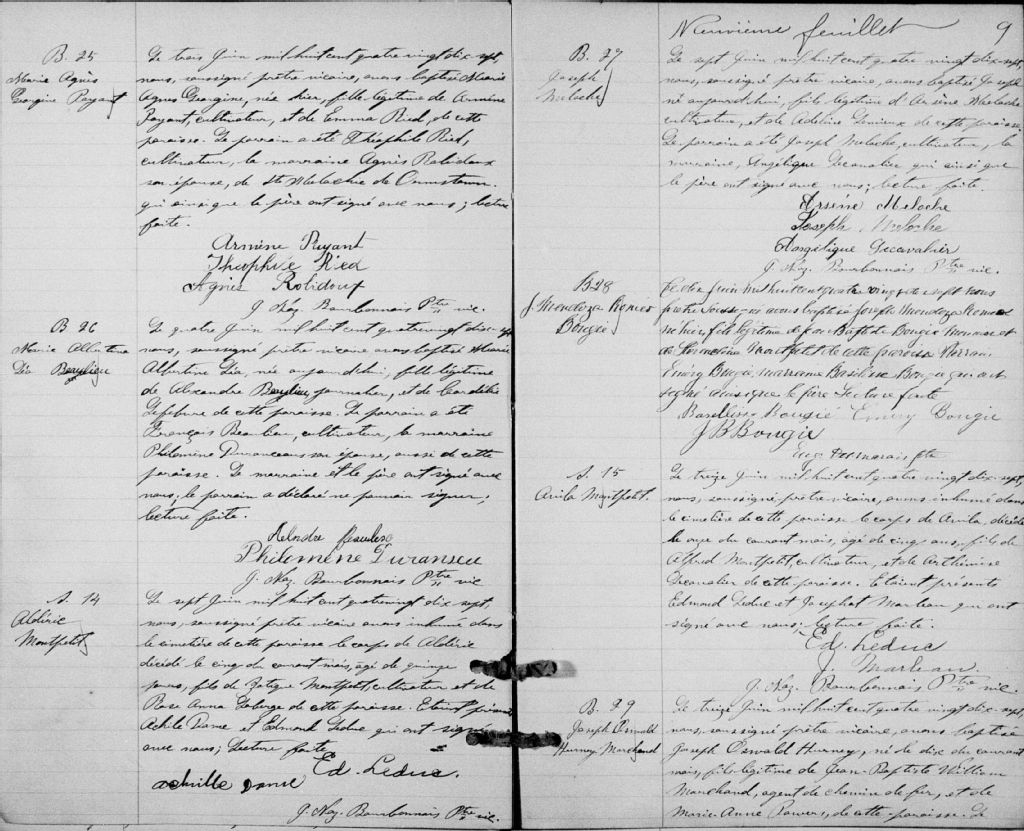 B. 25
Marie Agnès
Georgine Payant
Le trois Juin mil huit cent quatre vingt dix sept,
nous, soussigné prêtre vicaire, avons baptisé Marie
Agnes Georgine, née hier, fille légitime de Armène
Payant, cultivateur, et de Emma Ried, de cette
paroisse. Le parrain a été Théophile Ried,
cultivateur, la marraine Agnès Robidoux
son épouse, de St Malachie de Ormstown.
qui ainsi que le père ont signé avec nous; lecture
faite.
Armène Payant
Théophile Ried
Agnès Robidoux
J. Naz. Bourbonnais Ptre vic.
B 26
Marie Albertine
Beaulieu
Le quatre Juin mil huit cent quatrevingt dix-sept
nous, soussigné prêtre vicaire avons baptisé Marie
Albertine née aujourd'hui, fille légitime
de Alexandre Beaulieu, journalier, et de Cordélie
Lefebvre de cette paroisse. Le parrain a été
François cultivateur, la marraine
Philomène Duranceau son épouse, aussi de cette
paroisse. La marraine et le père ont signé avec
nous; le parrain a déclaré ne pouvoir signer;
lecture faite.
Philomène Duranseu
J. Naz. Bourbonnais Ptre vic
S. 14
Aldéric
Montpetit
Le sept Juin mil huit cent quatrevingt dix sept,
nous, soussigné prêtre vicaire avons inhumé dans
le cimetière de cette paroisse le corps de Aldéric
décédé le cinq du courant mois, agé de quinze
jours, fils de Montpetit, cultivateur et de
Rose Anna Laberge de cette paroisse. Etaient présents
Achile Dame et Edmond Leduc qui ont signé
avec nous; Lecture faite
Ed. Leduc.
achille Dame
J. Naz. Bourbonnais Ptre vic.
Neuvième feuillet 9
B. 27
Joseph
Meloche
Le sept Juin mil huit cent quatre vingt dix sept,
nous, soussigné prêtre vicaire, avons baptisé Joseph
né aujourd'hui, fils légitime d'Arsène Meloche
cultivateur, et de Adeline Lemieux de cette paroisse.
Le parrain a été Joseph Meloche, cultivateur, la
marraine, Angélique Decavalier qui ainsi que
le père ont signé avec nous; lecture faite.
Arsène Meloche
Joseph Meloche
Angélique Decavalier
J. Naz. Bourbonnais Ptre vic.
B 28
J. Mendoza
Bougie
Le dix Juin mil huit cent quatre vingt dix sept nous
prêtre soussigné avons baptisé Joseph Mendoza
né hier, fils légitime de Jean Baptiste Bougie et
de Montpetit de cette paroisse Parrain
Emery Bougie, marraine Basilisse Bougie qui ont
signé ainsi que le père Lecture faite
Basilisse Bougié Emery Bougie
J B Bougie
ptre
S. 15
Avila Montpetit.
Le treize Juin mil huit cent quatre vingt dix sept,
nous, soussigné prêtre vicaire, avons inhumé dans
le cimetière de cette paroisse le corps de Avila, décédé
le onze du courant mois, agé de cinq ans, fils de
Alfred Montpetit, cultivateur, et de Arthémise
Decavalier de cette paroisse. Etaient présents
Edmond Leduc et Josephat Marleau qui ont
signé avec nous; lecture faite.
Ed. Leduc
J. Marleau.
J. Naz. Bourbonnais Ptre vic.
B. 29
Joseph Oswald
Hurney Marchand
Le treize Juin mil huit cent quatre vingt dix sept,
nous, soussigné prêtre vicaire, avons baptisé
Joseph Oswald Hurney, né le dix du courant
mois, fils légitime de Jean-Baptiste William
Marchand, agent de chemin de fer, et de
Marie Anne Powers, de cette paroisse. Le